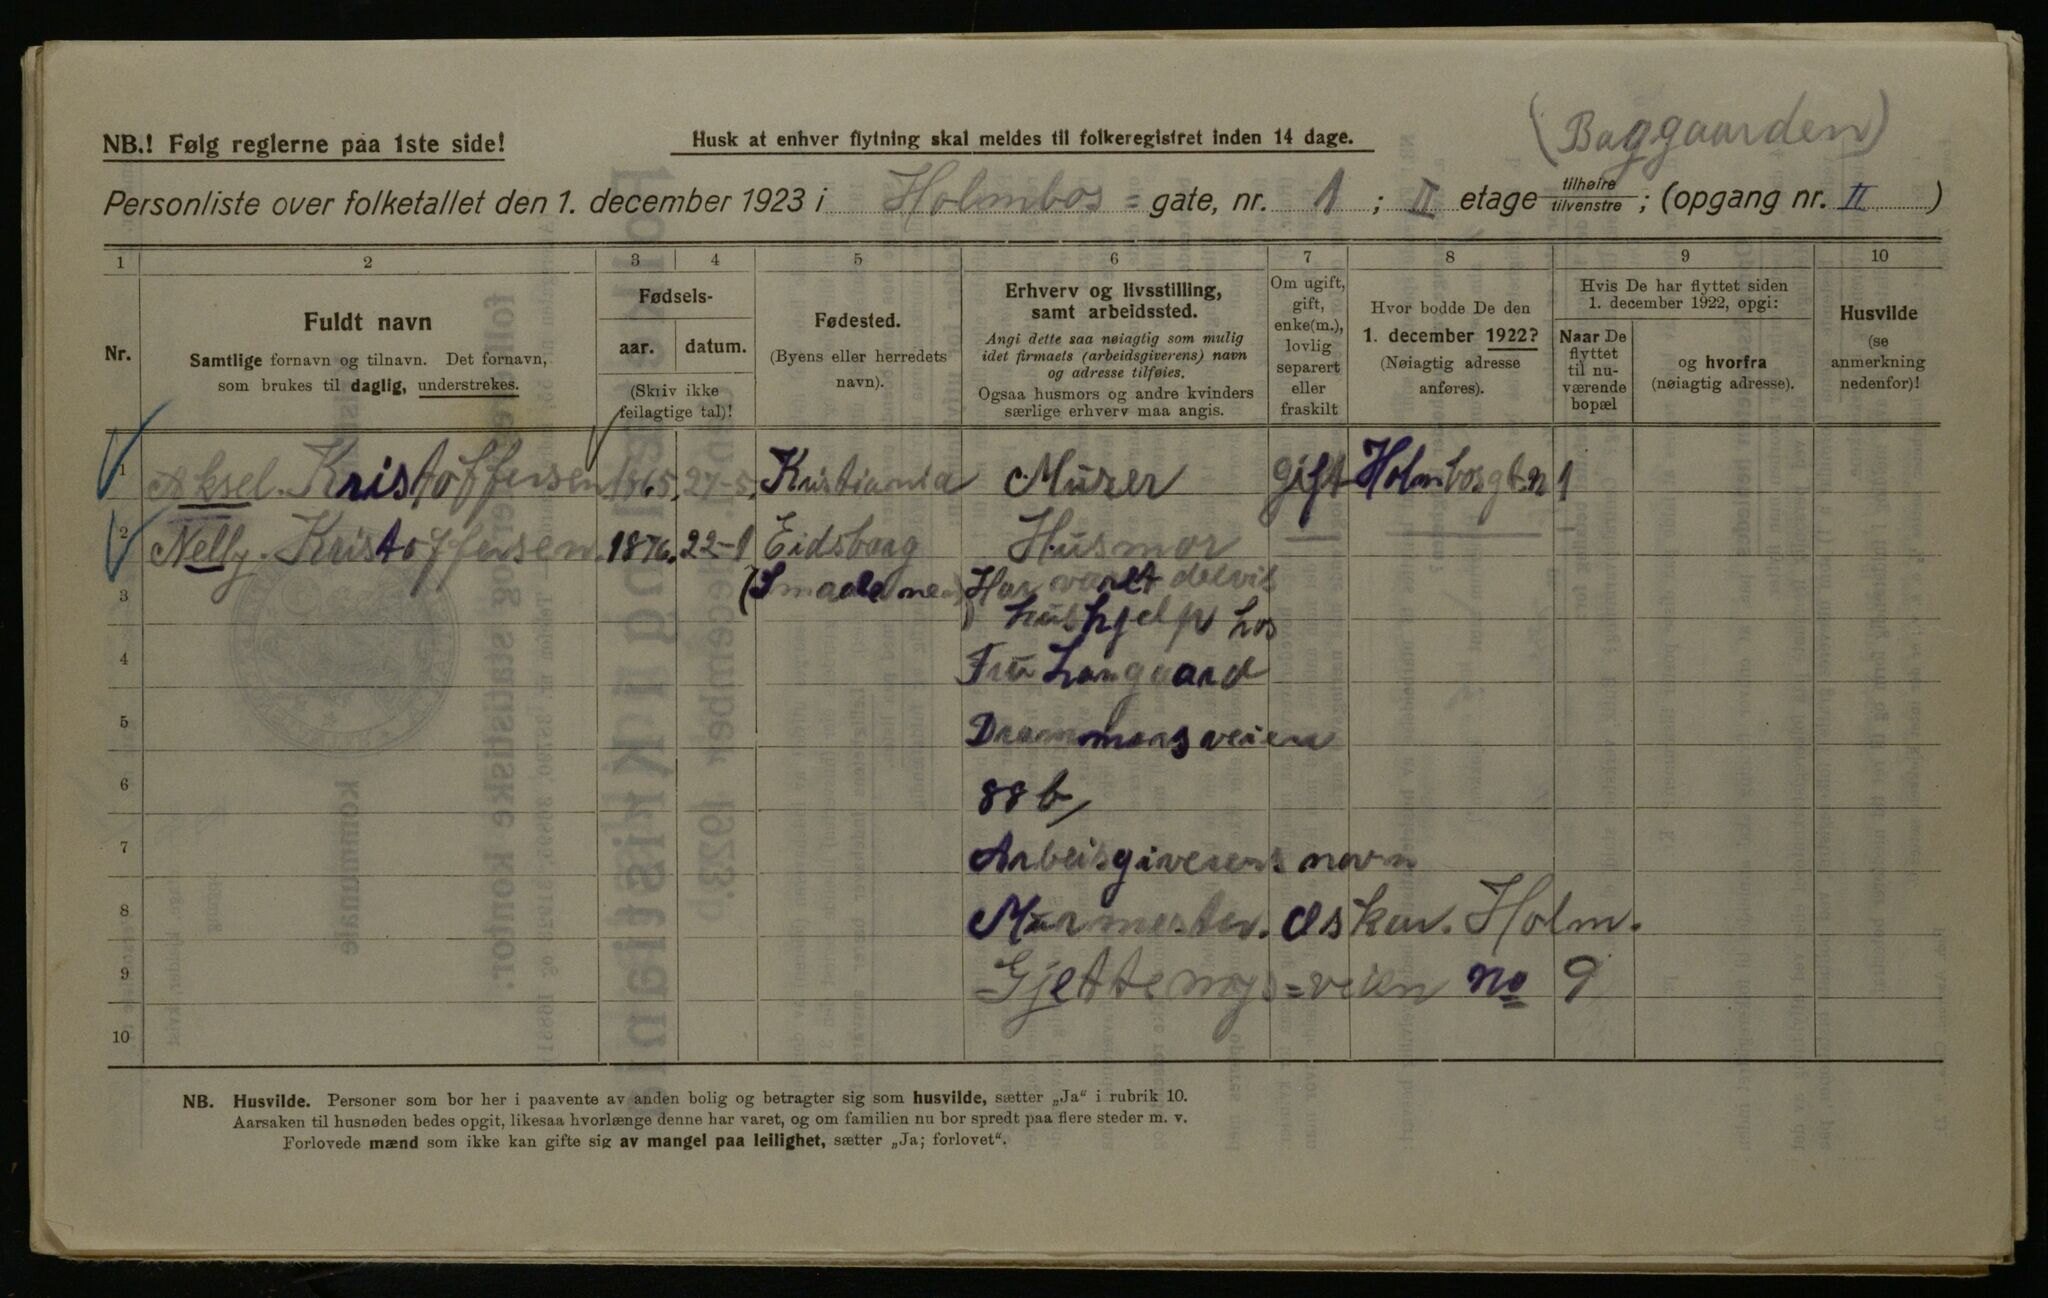 (Baggaarden)
NB.! Følg reglerne paa 1ste side!
Husk at enhver flytning skal meldes til folkeregistret inden 14 dage.
Personliste over folketallet den 1. december 1923 i Holmbos = gate, nr. 1 ; II etage tilhøire tilvenstre ; (opgang nr. II )
1 2 3 4 5 6 7 8 9 10
Nr.
Fuldt navn
Samtlige fornavn og tilnavn. Det fornavn,
som brukes til daglig, understrekes.
Fødsels-
aar. datum.
(Skriv ikke
feilagtige tal)!
Fødested.
(Byens eller herredets
navn).
Erhverv og livsstilling,
samt arbeidssted.
Angi dette saa nøiagtig som mulig
idet firmaets (arbeidsgiverens) navn
og adresse tilføies.
Ogsaa husmors og andre kvinders
særlige erhverv maa angis.
Om ugift,
gift,
enke(m.),
lovlig
separert
eller
fraskilt
Hvor bodde De den
1. december 1922?
(Nøiagtig adresse
anføres).
Hvis De har flyttet siden
1. december 1922, opgi:
Naar De
flyttet
til nu-
værende
bopæl
og hvorfra
(nøiagtig adresse).
Husvilde
(se
anmerkning
nedenfor)!
1 Aksel. Kristoffersen 1865. 27-5. Kristiania Murer gift Holmbosgt. n 1
2 Nelly. Kristoffersen. 1876. 22-1 Eidsborg Husmor
3 (Smaalenene) Har varet delvis
hushjelp hos
4 Fru Langaard
5 Drammensveien
6 88 b/
7 Arbeisgiverens navn
8 Murmester. Oskar. Holm.
9 Gjettemyrs=veien no 9
10
NB. Husvilde. Personer som bor her i paavente av anden bolig og betragter sig som husvilde, sætter „Ja“ i rubrik 10.
Aarsaken til husnøden bedes opgit, likesaa hvorlænge denne har varet, og om familien nu bor spredt paa flere steder m. v.
Forlovede mænd som ikke kan gifte sig av mangel paa leilighet, sætter „Ja; forlovet“.